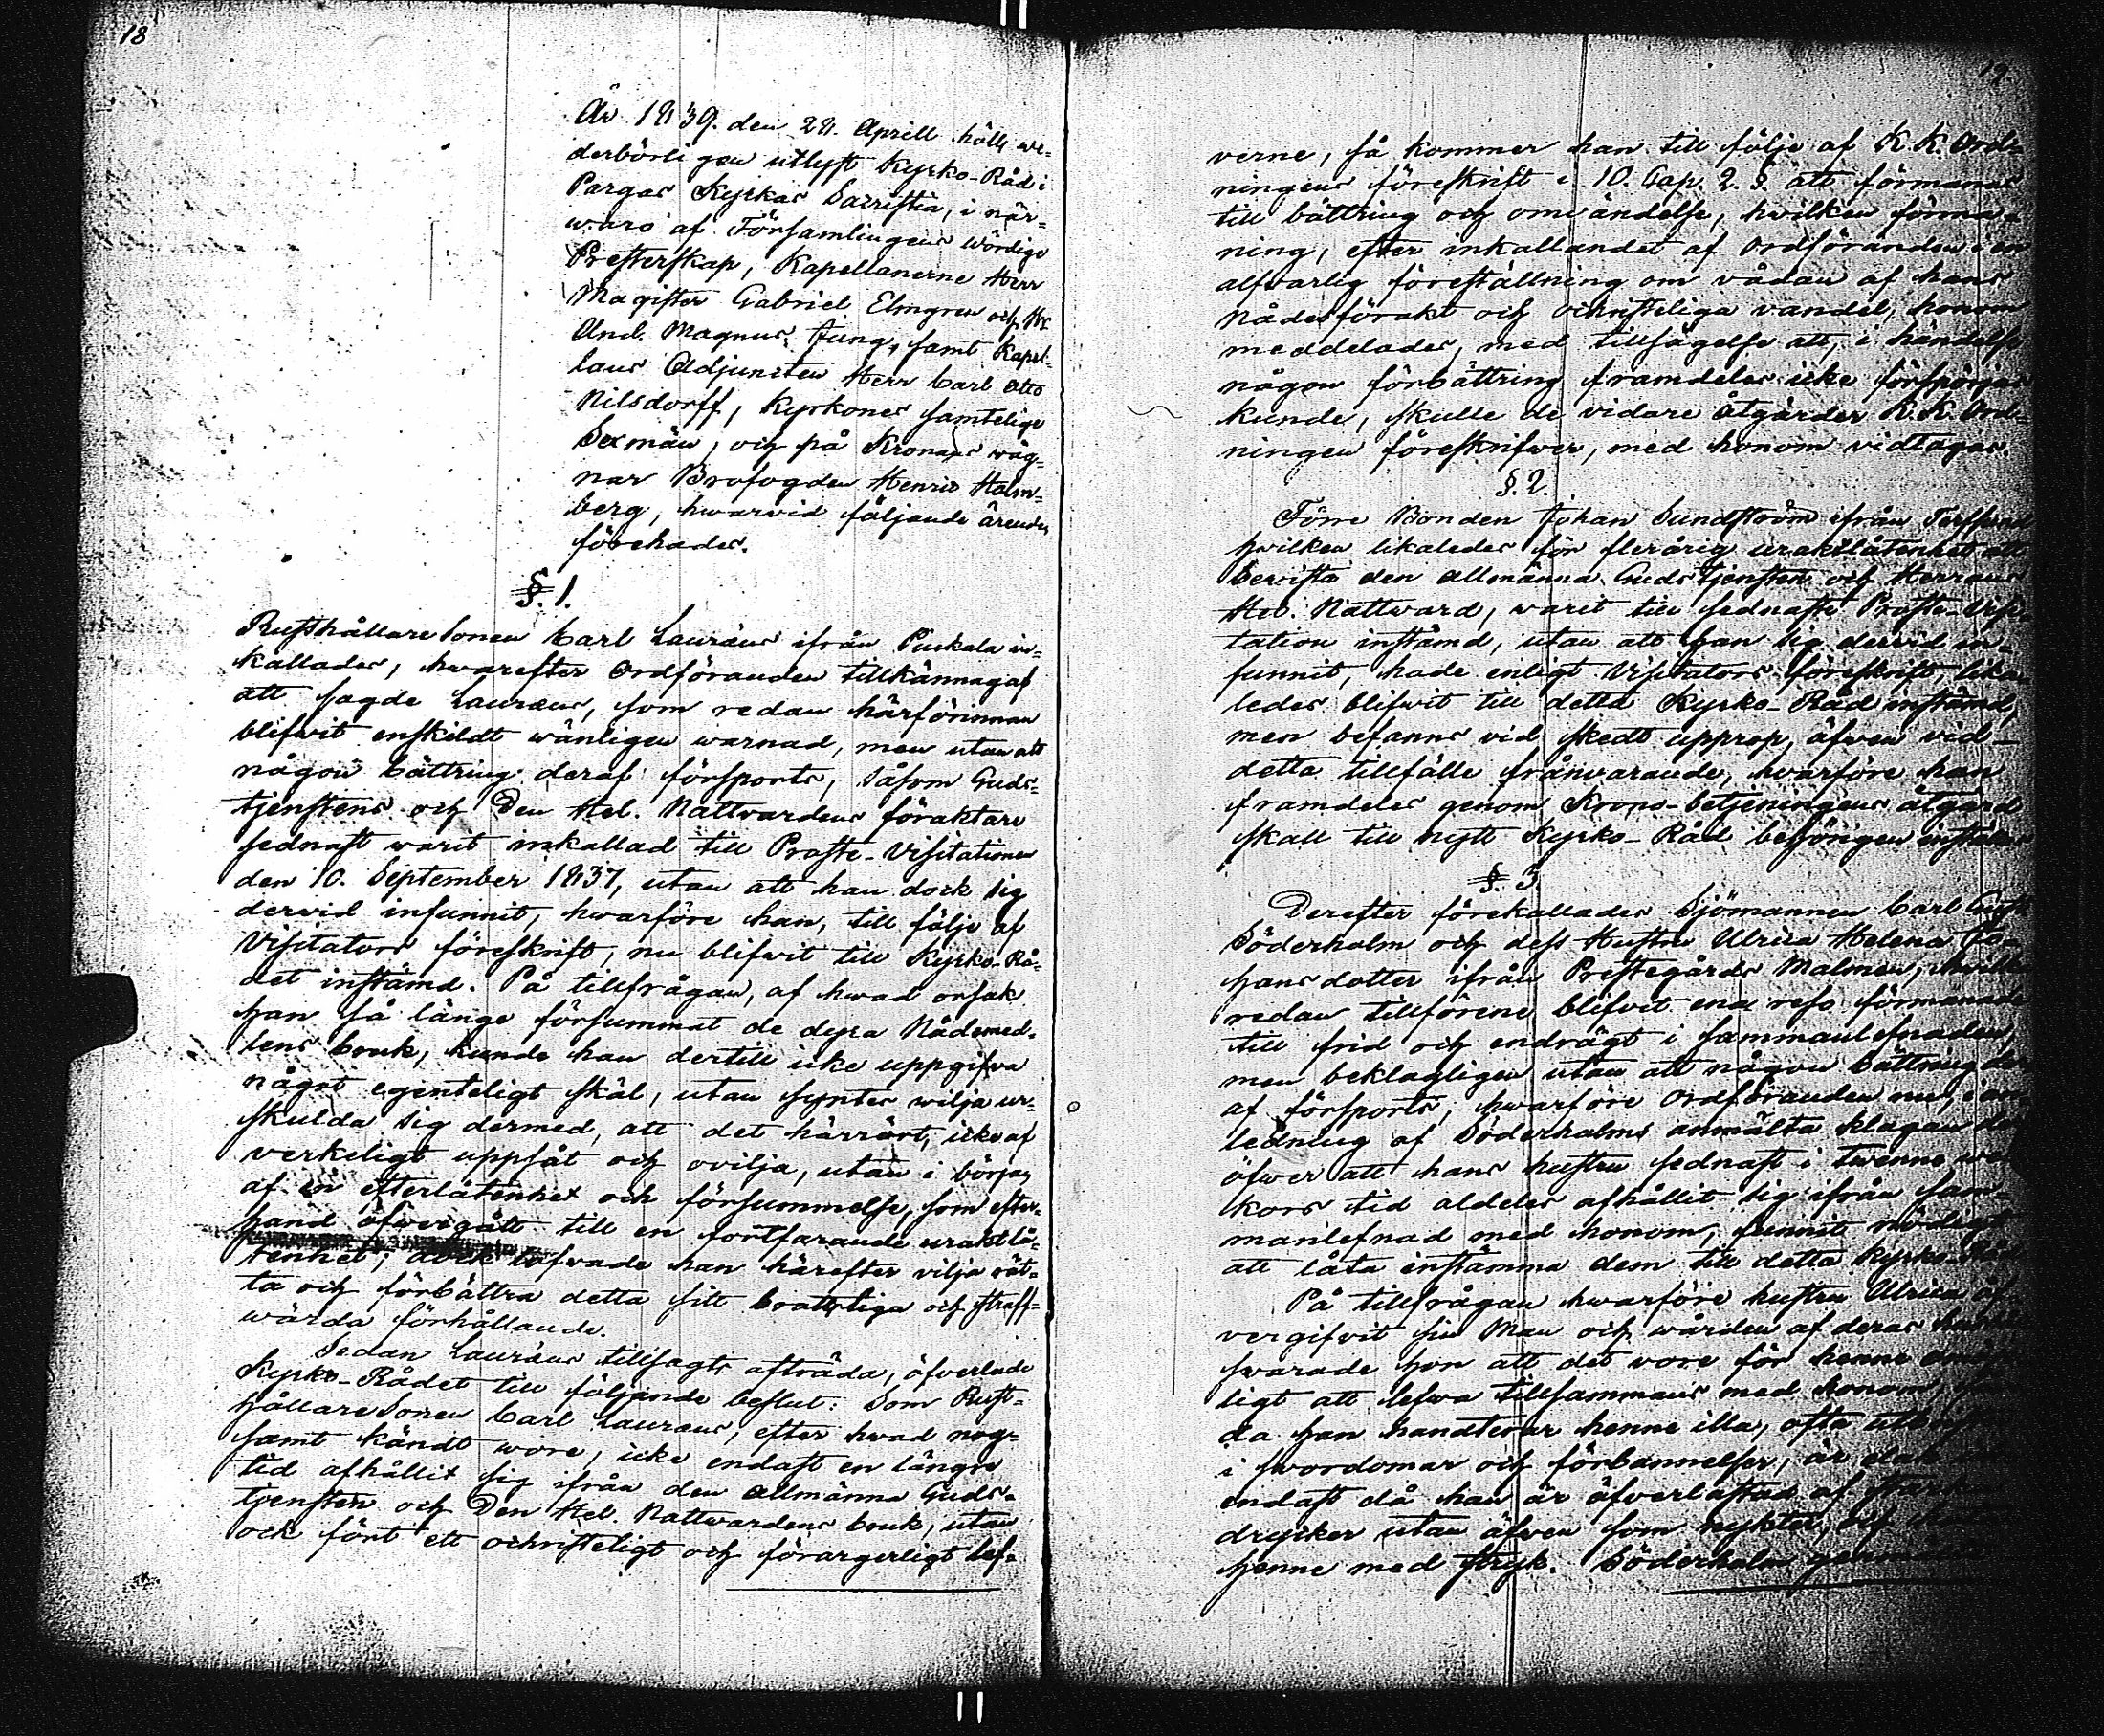 18
År 1839. den 28. Aprill hölls we-
derbörligen utlyst Kyrko-Råd i
Pargas Kyrkas Sacristia, i när-
waro af Församlingens wördige
Presterskap, Kapellanerne Herr
Magister Gabriel Elmgren och Hr
And. Magnus Jung, samt Kapel-
lans Adjuncten Herr Carl Otto
Nilsdorff, Kyrkones samtelige
Sexmän, och på Kronans wäg-
nar Brofogden Henric Holm-
berg, hwarvid följande ärenden
förehades.
§. 1.
Rusthållare Sonen Carl Lauræus ifrån in-
kallades, hwarefter Ordföranden tillkännagaf
att sagde Lauræus, som redan härförinnan
blifwit enskildt wänligen warnad, men utan att
någon bättring deraf försports, såsom Guds-
tjenstens och Den Hel. Nattvardens föraktare
sednast warit inkallad till Prosts-Visitationen
den 10. September 1837, utan att han dock sig
dervid infunnit, hwarföre han, till följe af
Visitators föreskrift, nu blifwit till Kyrko-Rå-
det instämd. På tillfrågan, af hwad orsak
han så länge försummat de dyra Nådemed-
lens bruk, kunde han dertill icke uppgifva
något egenteligt skäl, utan syntes wilja ur-
skulda sig dermed, att det härrört, icke af
verkeligt uppsåt och ovilja, utan i början
af en efterlåtenhet och försummelse, som efter-
hand öfvergått till en fortfarande uraktlå-
tenhet; dock lofvade han härefter vilja rät-
ta och förbättra detta sitt brottsliga och straff-
wärda förhållande.
Sedan Lauræus tillsagts afträda, öfverlade
Kyrko-Rådet till följande beslut: Som Rust-
hållareSonen Carl Lauræus, efter hwad nog-
samt kändt wore, icke endast en längre
tid afhållit sig ifrån den allmänna Guds-
tjensten och Den Hel. Nattwardens bruk, utan
ock fört ett ochristeligt och förargerligt lef-
19
verne, så kommer han till följe af K. K. Ord-
ningens föreskrift i 10. Cap. 2. §. att förmanas
till bättring och omvändelse, hwilken förma-
ning, efter inkallandet af Ordföranden i en
alfvarlig föreställning om vådan af hans
Nådesförakt och ochristeliga vandel, honom
meddelades, med tillsägelse att, i händelse
någon förbättring framdeles icke förspörjas
kunde, skulle de vidare åtgärder K. K. Ord-
ningen föreskrifver, med honom vidtagas.
§. 2.
Förre Bonden Johan Sundström ifrån
hvilken likaledes för flerårig uraktlåtenhet att
bevista den allmänna Gudstjensten och Herrans
Hel. Nattward, varit till sednaste Prosts-Visi-
tation instämd, utan att han sig dervid in-
funnit, hade enligt Visitators föreskrift, lika-
ledes blifwit till detta Kyrko-Råd instämd,
men befanns vid skedt upprop, äfven vid
detta tillfälle frånvarande, hvarföre han
framdeles genom Krono-betjeningens åtgärd
skall till nytt Kyrko-Råd behörigen instämas
§. 3.
Derefter förekallades Sjömannen Carl
Söderholm och dess Hustru Ulrica Helena Jo-
hansdotter ifrån Prestegårds Malmen, hwilka
redan tillförene blifvit ena reso förmanade
till frid och endrägt i sammanlefnaden,
men beklagligen utan att någon bättring der-
af försports, hwarföre Ordföranden nu, i an-
ledning af Söderholms anmälta klagan der-
öfwer att hans hustru sednast i twenne we-
kors tid aldeles afhållit sig ifrån sam-
manlefnad med honom, funnit nödigt
att låta instämma dem till detta Kyrko-Råd
På tillfrågan hwarföre hustru Ulrica öf-
vergifvit sin Man och wården af deras
swarade hon att det vore för henne
ligt att lefwa tillsammans med honom,
da han handterar henne illa, ofta
i swordomar och förbannelser, är elak
endast då han är öfverlastad af starka
drycker utan äfven som nykter, och
henne med stryk. Söderholm